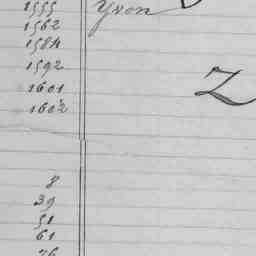 1555 Yvon
1562
1584
1592
1601
1602
Z
8
39
51
61
76